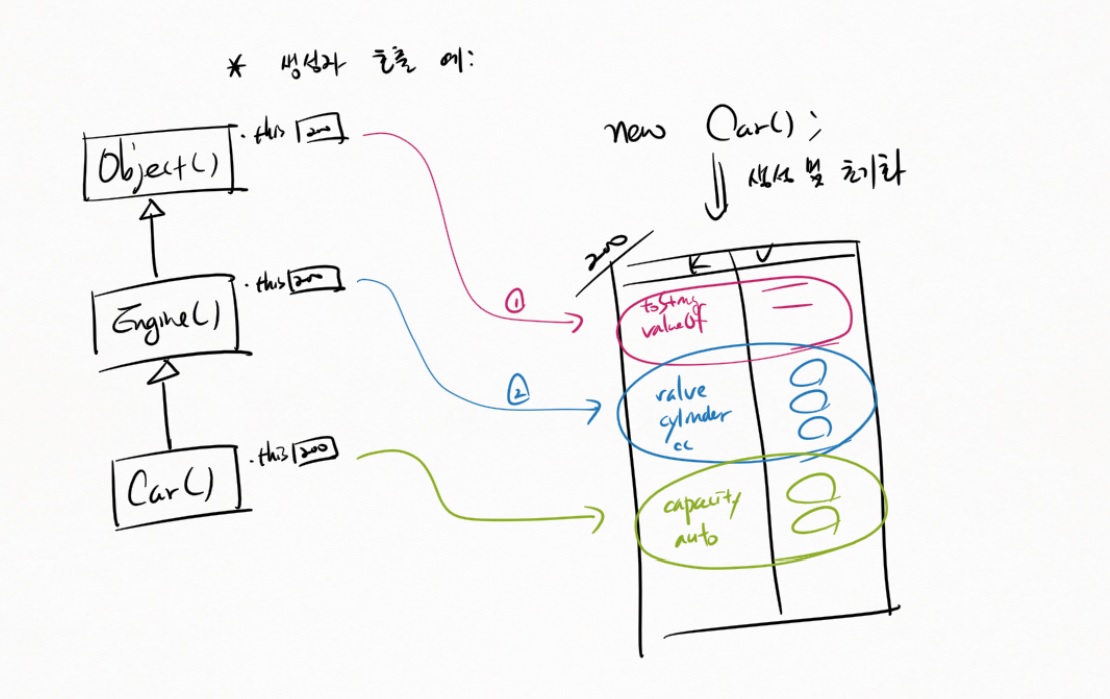 * 생성자 호출 예:
Object()
.this 200
Engine()
.this 200
Car()
.this 200
①
②
new Car();
생성 및 초기화
200
K V
toString
valueOf
valve
cylinder
cc
capacity
auto